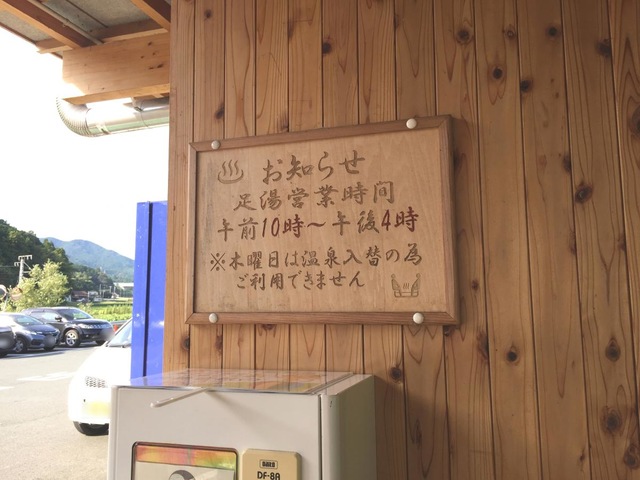 お知らせ
足湯営業時間
午前10時～午後4時
※木曜日は温泉入替の為
ご利用できません
DF-8A